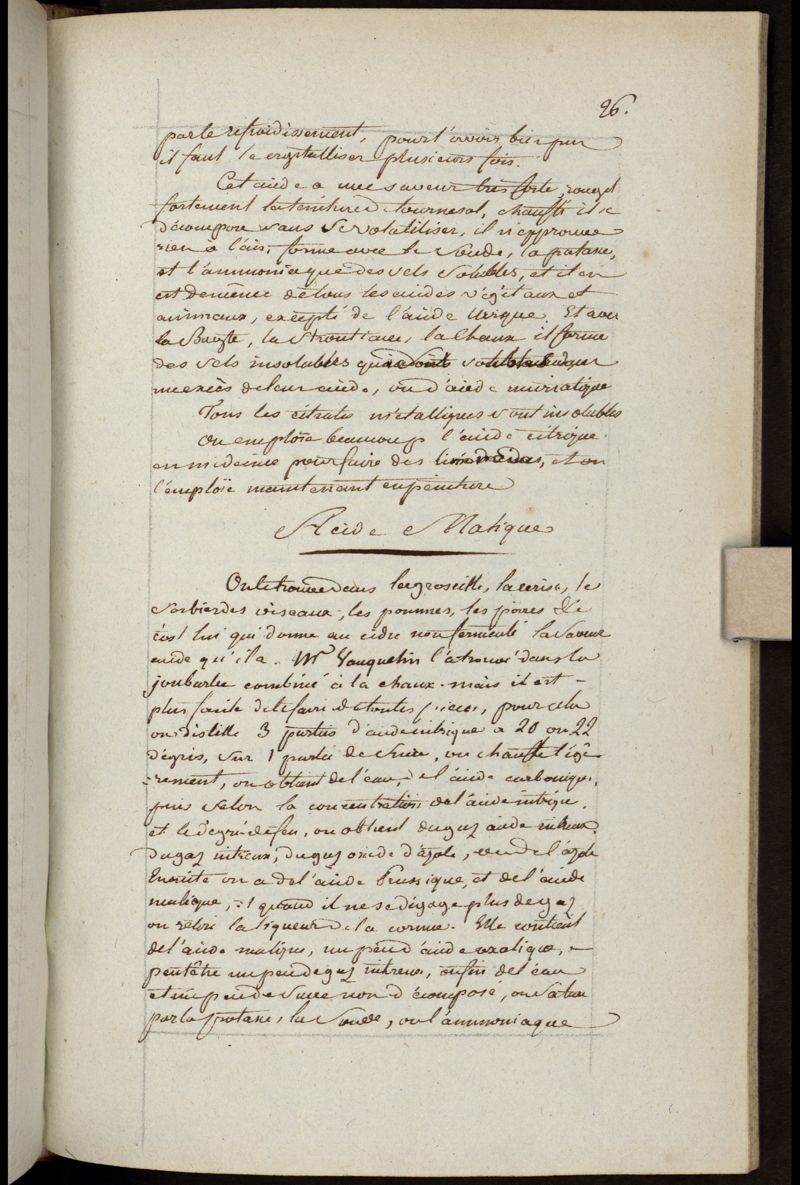 26.
par le refroidissement, pour l'avoir bien pur
il faut le crystalliser plusieurs fois.
Cet acide a une saveur très forte, rougit
fortement la teinture de tournesol, chauffé il se
décompose sans se volatiliser, il n'épprouve
rien à l'air, forme avec la Soude, la potasse,
et l'ammoniaque des sels solubles, et il en
est de même de tous les acides végétaux et
animaux, excepté de l'acide Urique. Et avec
la Baryte, la Strontiane, la Chaux il forme
des sels insolubles qui sont solubles dans
un excès de leur acide, ou d'acide muriatique
Tous les citrates métalliques sont insolubles
On emploïe beaucoup l'acide citrique
en médecine pour faire des limonades, et on
l'emploïe maintenant en peinture
Acide Malique
On le trouve dans la groseille, la cerise, le
Sorbier des oiseaux, les pommes, les poires &c
c'est lui qui donne au cidre non fermenté la saveur
acide qu'il a. Mr Vauquelin l'a trouvé dans la
joubarbe combiné à la chaux. mais il est
plus facile de le faire de toutes pièces, pour cela
on distille 3 parties d'acide nitrique à 20 ou 22
dégrés, sur 1 partie de Sucre, on chauffe légè-
-rement, on obtient de l'eau, de l'acide carbonique,
puis selon la concentration de l'acide nitrique,
et le dégré de feu, on obtient du gaz acide nitreux,
du gaz nitreux, du gaz oxide d'azote, ou de l'azote
Ensuite on a de l'acide Prussique, et de l'acide
malique, et quand il ne se dégage plus de gaz
on retire la liqueur de la cornue. Elle contient
de l'acide malique, un peu d'acide oxalique,
peutêtre un peu de gaz nitreux, enfin de l'eau
et un peu de sucre non décomposé, on sature
par la potasse, la Soude, ou l'ammoniaque